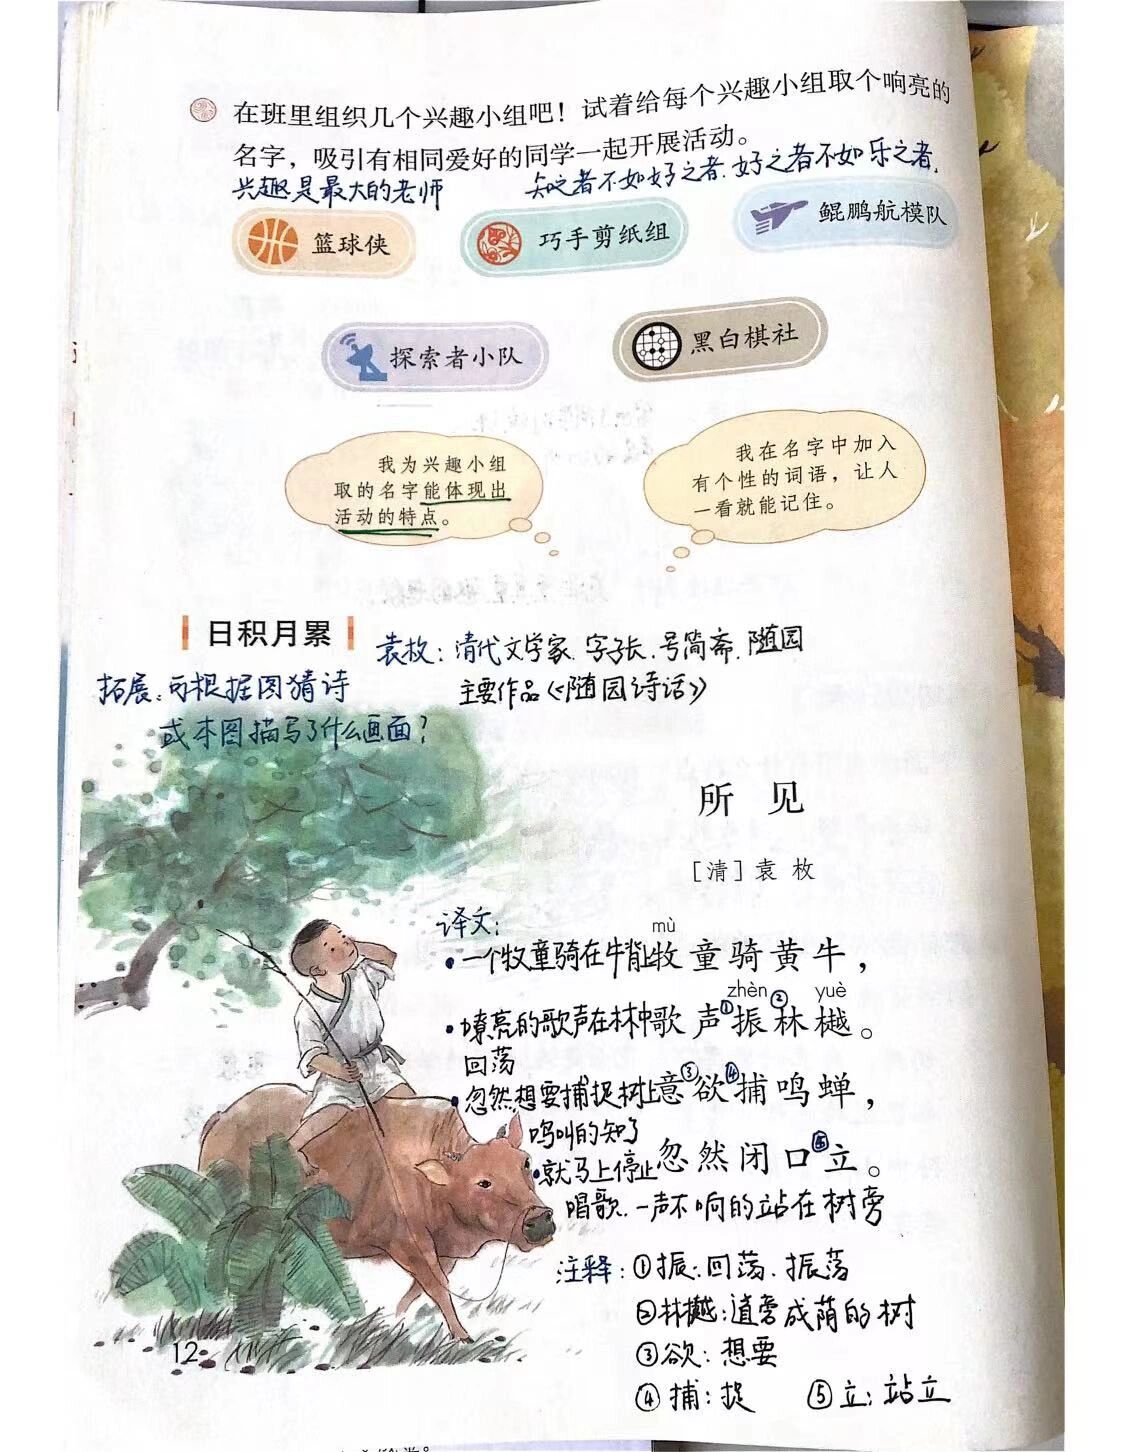 在班里组织几个兴趣小组吧！试着给每个兴趣小组取个响亮的
名字，吸引有相同爱好的同学一起开展活动。
兴趣是最大的老师
知之者不如好之者.好之者不如乐之者.
篮球侠
巧手剪纸组
鲲鹏航模队
探索者小队
黑白棋社
我为兴趣小组
取的名字能体现出
活动的特点。
我在名字中加入
有个性的词语，让人
一看就能记住。
日积月累
袁枚：清代文学家.字子长.号简斋.随园
主要作品《随园诗话》
拓展：可根据图猜诗
或本图描写了什么画面？
所见
[清]袁枚
译文：
mù
一个牧童骑在牛背上
牧童骑黄牛，
zhèn yuè
嘹亮的歌声在林中
回荡
歌声①振②林樾。
忽然想要捕捉树上
鸣叫的知了
意③欲④捕鸣蝉，
就马上停止
忽然闭口⑤立。
唱歌.一声不响的站在树旁
注释：①振：回荡.振荡
②林樾：道旁成荫的树
③欲：想要
④捕：捉 ⑤立：站立
12